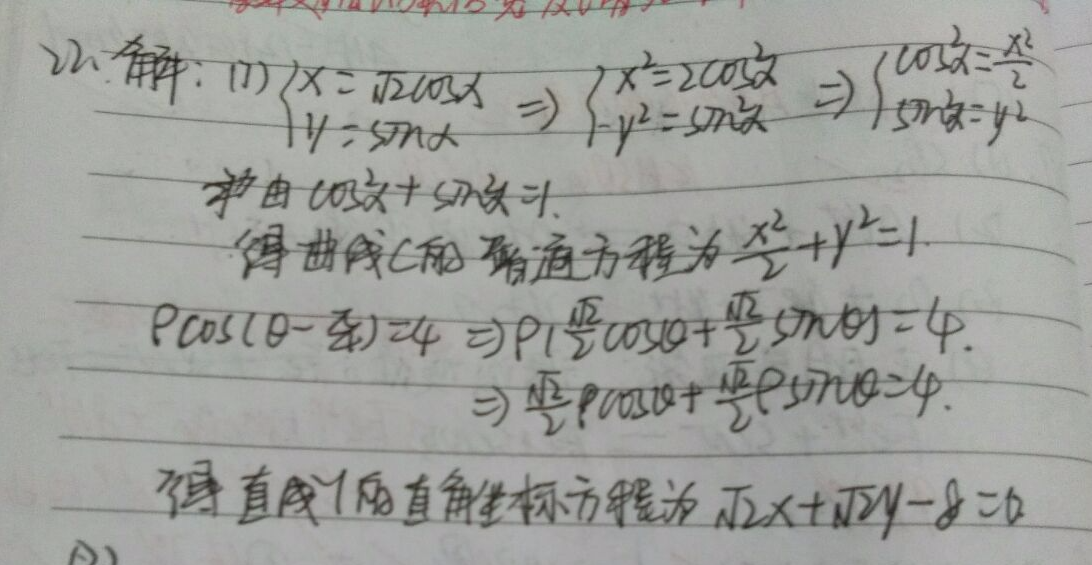 22. 解: (1) { x = √2cosα y = sinα => { x² = 2cos²α y² = sin²α => { cos²α = x²/2 sin²α = y²
由 cos²α + sin²α = 1.
得曲线C的普通方程为 x²/2 + y² = 1.
ρcos(θ - π/4) = 4 => ρ(√2/2 cosθ + √2/2 sinθ) = 4.
=> √2/2 ρcosθ + √2/2 ρsinθ = 4.
得直线l的直角坐标方程为 √2x + √2y - 8 = 0